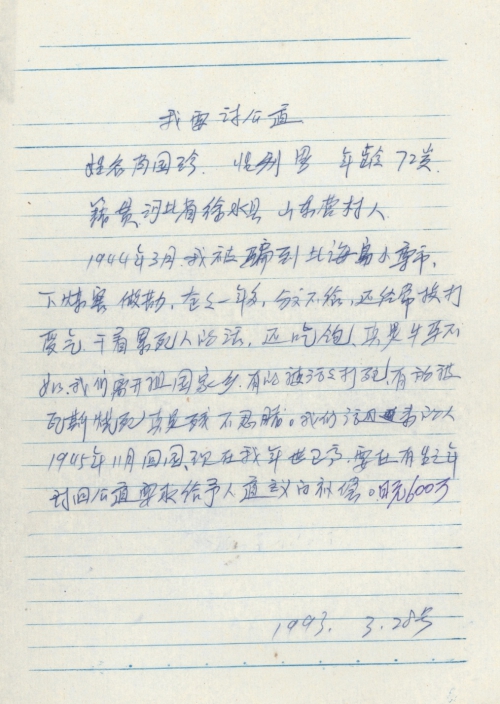 我要讨公道
姓名尚国珍. 性别男 年龄72岁.
籍贯河北省徐水县 山东营村人
1944年3月.我被骗到北海道小 市,
下煤窑 做劳 一年多,分文不给,还经常挨打
受气.干着累死人的活,还吃 饱,真是牛马不
如.我们离开祖国家乡.有的被活活打死,有的被
瓦斯烧死,真是 不忍睹。我们
1945年11月回国,现在我年世已高.要在有生之年
讨回公道要求给予人道议的补偿。日元600万
1993. 3.28号